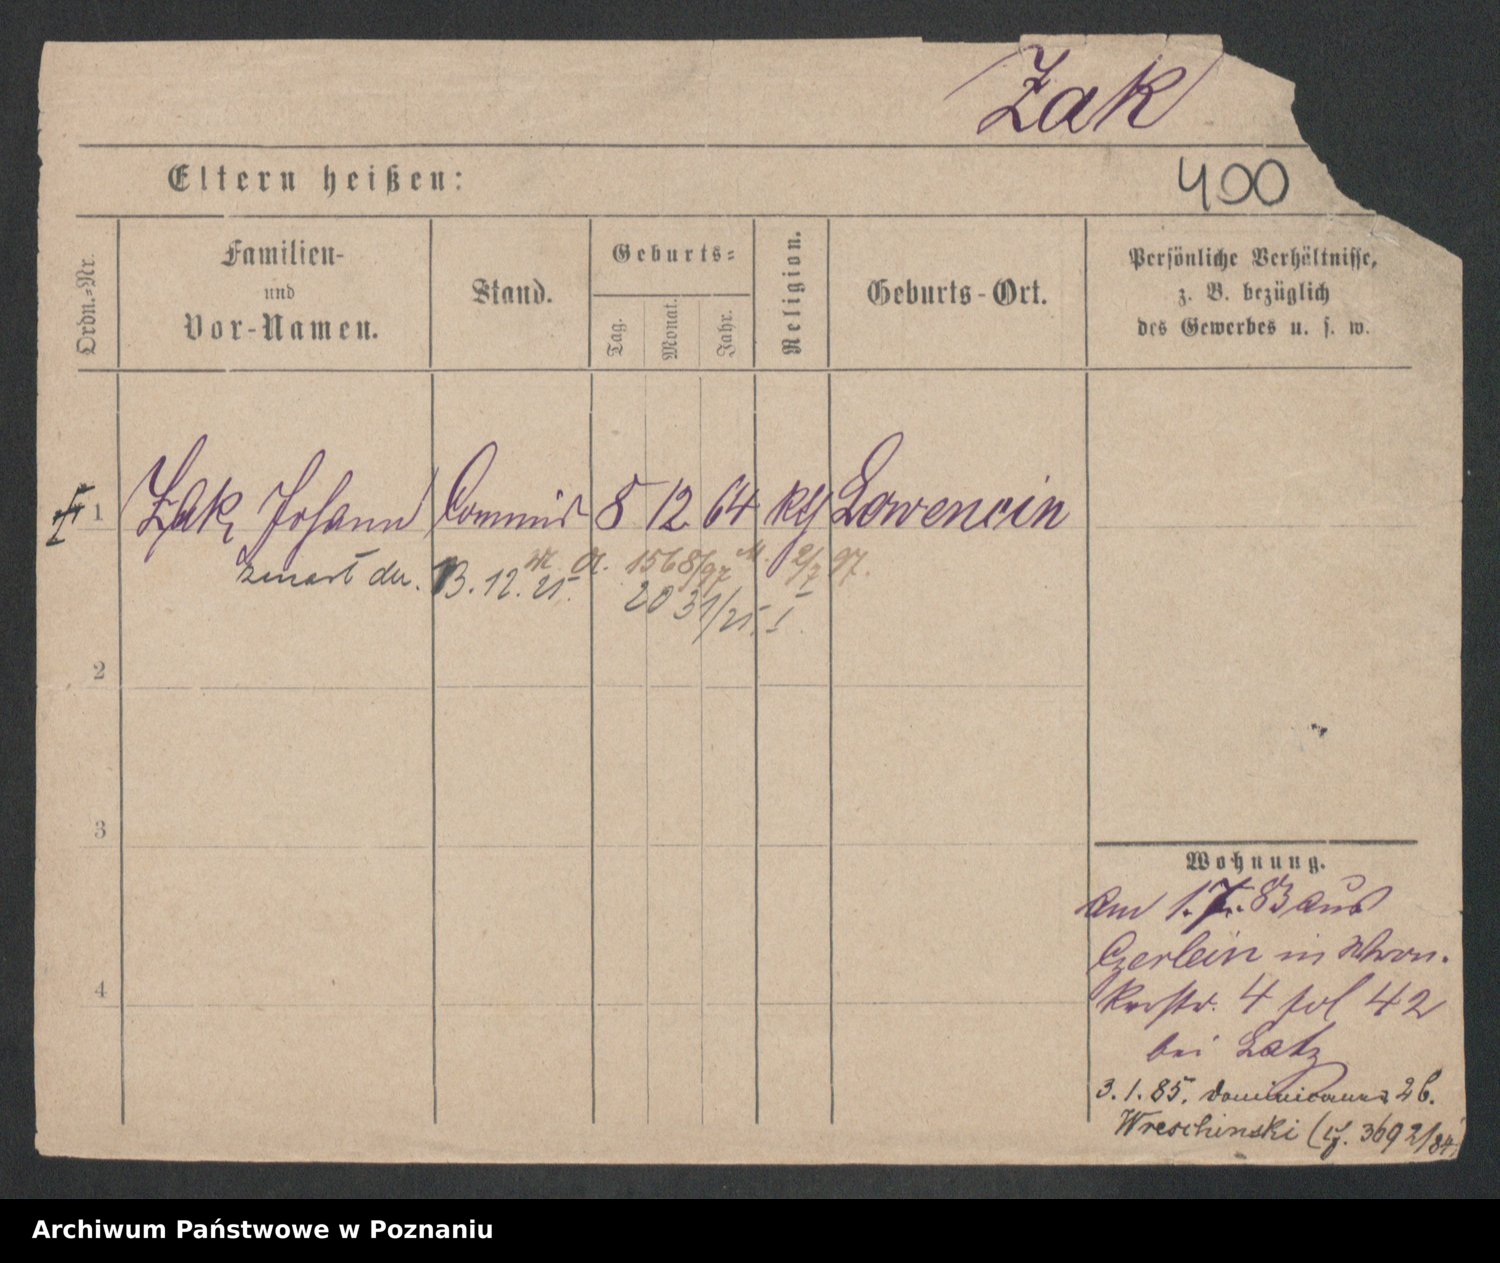 Zak
400
Eltern heißen:
Ordn.=Nr.
Familien-
und
Vor-Namen.
Stand.
Geburts=
Tag.
Monat.
Jahr.
Religion.
Geburts-Ort.
Persönliche Verhältnisse,
z. B. bezüglich
des Gewerbes u. s. w.
1 Zak, Johann Commis 8 12 64 kth Lowencin
13. 12. 25.
2
3
4
Wohnung.
am 1. 83 aus
in Wron.
kerstr. 4 fol 42
bei Latz
3. 1. 85. Dominicaner 26.
Wreschinski (3692/84)
Archiwum Państwowe w Poznaniu